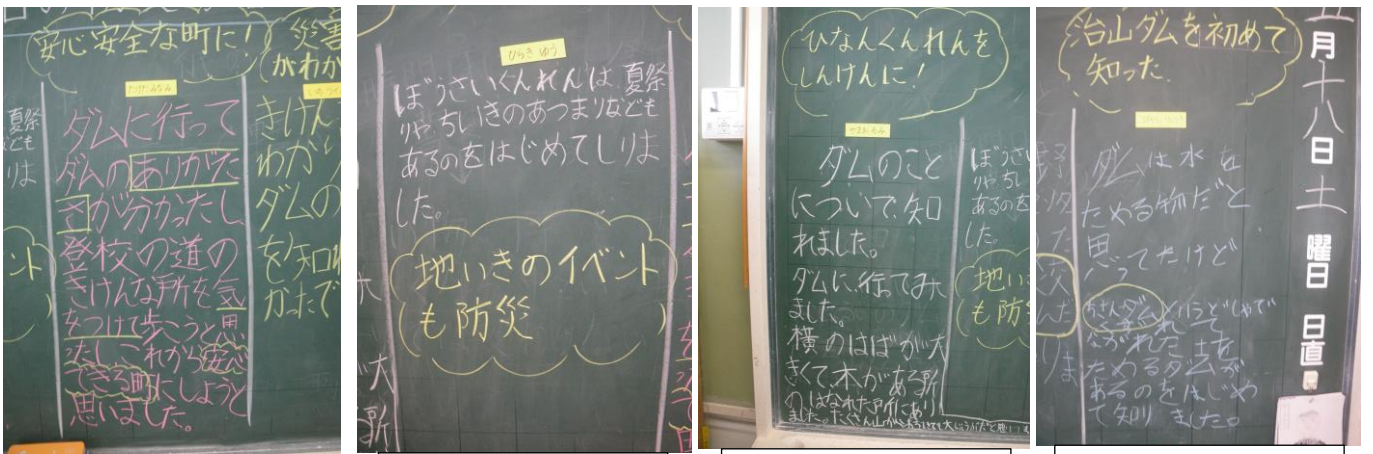 安心安全な町に!
災害
がわか
夏祭
ども
りま
ダムに行って
ダムのありがた
さが分かったし、
登校の道の
きけんな所を気
をつけて歩こうと思
ったし、これから安心
できる町にしようと
思いました。
きけん
わかり
ダムの
を知れ
かったで
ント
ひらき ゆう
ぼうさいくんれんは、夏祭
りや、ちいきのあつまりなども
あるのをはじめてしりま
した。
地いきのイベント
も防災
ひなんくんれんを
しんけんに!
ダムのこと
について、知
れました。
ダムに行ってみ
ました。
横のはばが大
きくて、木がある所
ぼうさい
りや、ちい
あるのを
した。
地い
も防
治山ダムを初めて
知った。
ダムは水を
ためる物だと
思ってたけど
ちさんダムというどしゃで
ながれた土を
ためるダムが
あるのをはじめ
て知りました。
月十八日土曜日 日直